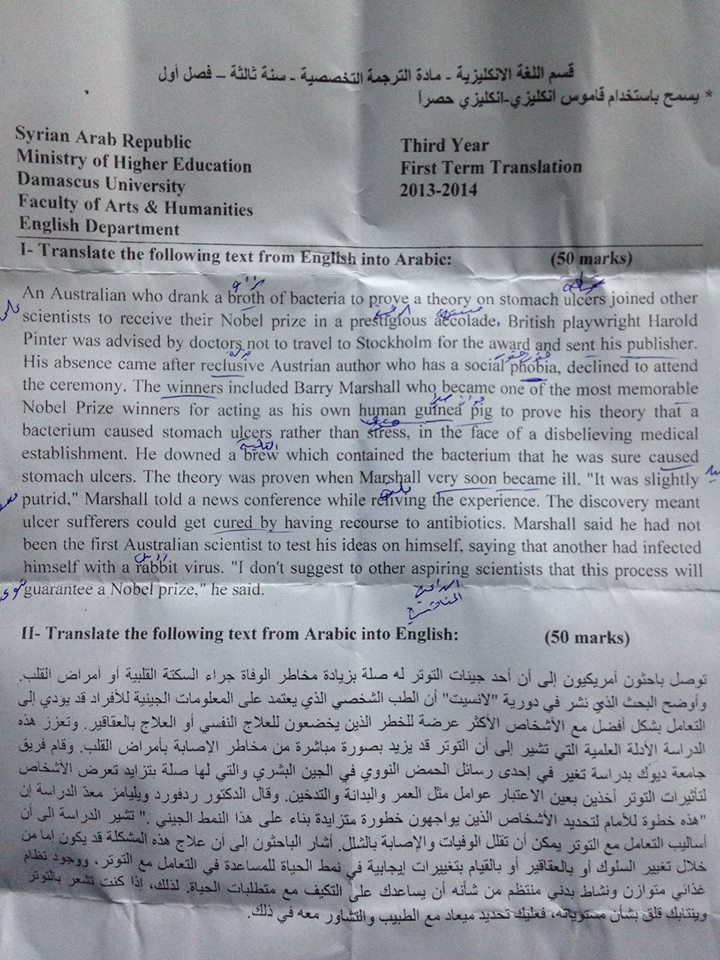 قسم اللغة الانكليزية - مادة الترجمة التخصصية - سنة ثالثة – فصل أول
* يسمح باستخدام قاموس انكليزي-انكليزي حصراً
Syrian Arab Republic
Ministry of Higher Education
Damascus University
Faculty of Arts & Humanities
English Department
Third Year
First Term Translation
2013-2014
I- Translate the following text from English into Arabic: (50 marks)
An Australian who drank a broth of bacteria to prove a theory on stomach ulcers joined other
scientists to receive their Nobel prize in a prestigious accolade. British playwright Harold
Pinter was advised by doctors not to travel to Stockholm for the award and sent his publisher.
His absence came after reclusive Austrian author who has a social phobia, declined to attend
the ceremony. The winners included Barry Marshall who became one of the most memorable
Nobel Prize winners for acting as his own human guinea pig to prove his theory that a
bacterium caused stomach ulcers rather than stress, in the face of a disbelieving medical
establishment. He downed a brew which contained the bacterium that he was sure caused
stomach ulcers. The theory was proven when Marshall very soon became ill. "It was slightly
putrid," Marshall told a news conference while reliving the experience. The discovery meant
ulcer sufferers could get cured by having recourse to antibiotics. Marshall said he had not
been the first Australian scientist to test his ideas on himself, saying that another had infected
himself with a rabbit virus. "I don't suggest to other aspiring scientists that this process will
guarantee a Nobel prize," he said.
II- Translate the following text from Arabic into English: (50 marks)
توصل باحثون أمريكيون إلى أن أحد جينات التوتر له صلة بزيادة مخاطر الوفاة جراء السكتة القلبية أو أمراض القلب.
وأوضح البحث الذي نشر في دورية "لانسيت" أن الطب الشخصي الذي يعتمد على المعلومات الجينية للأفراد قد يؤدي إلى
التعامل بشكل أفضل مع الأشخاص الأكثر عرضة للخطر الذين يخضعون للعلاج النفسي أو العلاج بالعقاقير. وتعزز هذه
الدراسة الأدلة العلمية التي تشير إلى أن التوتر قد يزيد بصورة مباشرة من مخاطر الاصابة بأمراض القلب. وقام فريق
جامعة ديوك بدراسة تغير في إحدى رسائل الحمض النووي في الجين البشري والتي لها صلة بتزايد تعرض الأشخاص
لتأثيرات التوتر أخذين بعين الاعتبار عوامل مثل العمر والبدانة والتدخين. وقال الدكتور ردفورد ويليامز معدّ الدراسة إن
"هذه خطوة للأمام لتحديد الأشخاص الذين يواجهون خطورة متزايدة بناء على هذا النمط الجيني." تشير الدراسة الى أن
أساليب التعامل مع التوتر يمكن أن تقلل الوفيات والإصابة بالشلل. أشار الباحثون إلى ان علاج هذه المشكلة قد يكون اما من
خلال تغيير السلوك أو بالعقاقير أو بالقيام بتغييرات إيجابية في نمط الحياة للمساعدة في التعامل مع التوتر، ووجود نظام
غذائي متوازن ونشاط بدني منتظم من شأنه أن يساعدك على التكيف مع متطلبات الحياة. لذلك، إذا كنت تشعر بالتوتر
وينتابك قلق بشأن مستوياته، فعليك تحديد ميعاد مع الطبيب والتشاور معه في ذلك.